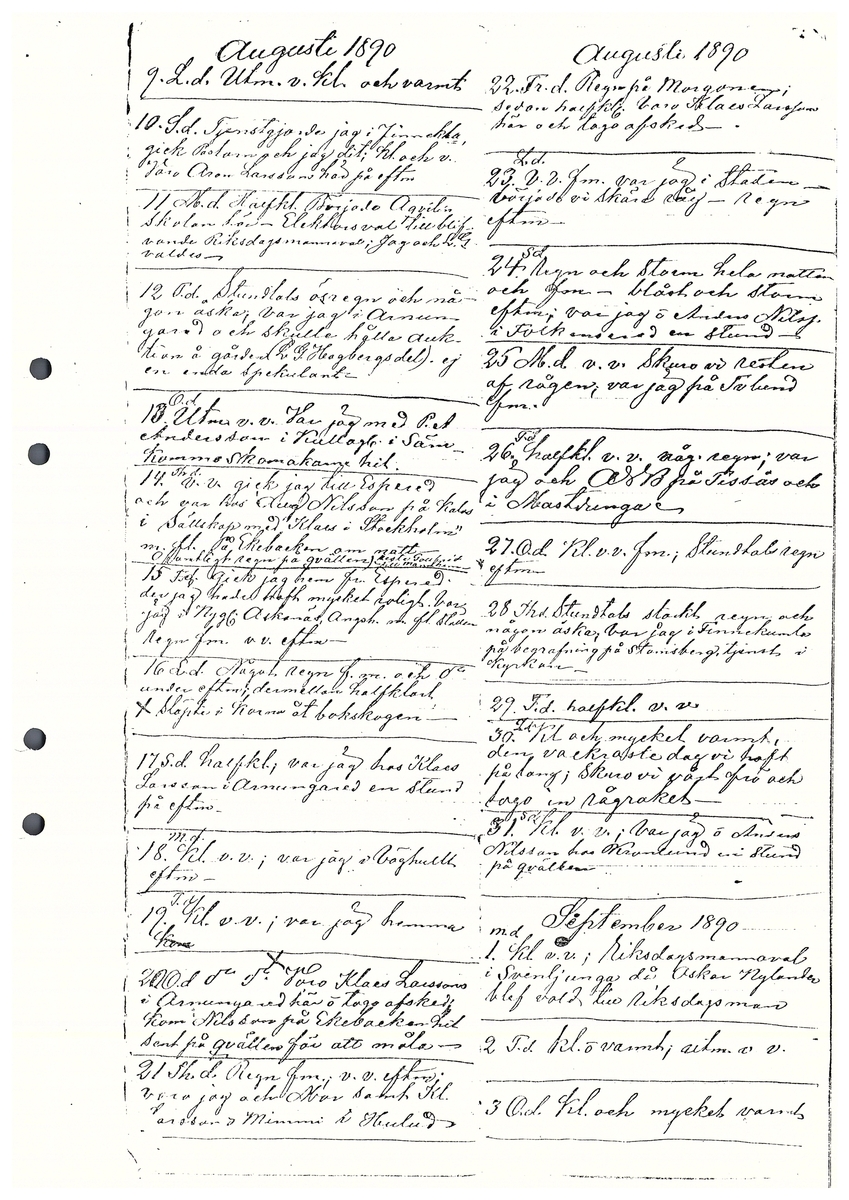 Augusti 1890
9. L.d. Utm. v. Kl. och varmt
10. S.d. Tjenstgjorde jag i Finnekla,
gick Pastorn och jag dit; Kl. och v.
Voro Aron Larssons här på eftm
11 M.d. Halfkl. Började
skolan här – Elektorsval till blif-
vande Riksdagsmannaval; Jag och
valdes –
12 T.d. Stundtals ösregn och nå-
gon åska; var jag i Arnun-
gared och skulle hålla auk-
tion å gården (L. G. Hagbergs del). ej
en enda spekulant –
13 O.d. Utm. v. v. Var jag med P. A
Andersson i Kullag. i Säm-
Kommo Skomakarne hit.
14. Thd. v. v. gick jag till Espered
och var hos Aug Nilsson på Kalas
i Sällskap med "Klaes i Stockholm"
m. fl. på Ekebacken om natt
Ofantligt regn på qvällen
15 Frd. gick jag hem fr. Espered.
der jag hade haft mycket roligt. Voro
jag i Askenäs, m. fl. Ställen
regn fm. v.v. eftm –
16 L.d. Något regn f.m. och do
under eftm; dermellan halfklart.
X Släpte i Korna åt bokskogen –
17 S.d. halfkl; var jag hos Klaes
Larsson i Arnungared en stund
på eftm. –
18. M.d. Kl. v. v.; var jag i Våghult
eftm –
19. T.d. Kl. v. v.; var jag hemma
20 O.d do do. X Voro Klaes Larssons
i Arnungared här o togo afsked;
kom Nilsson på Ekebacken hit
sent på qvällen för att måla –
21 Th.d. Regn fm.; v. v. eftm;
voro jag och Mor samt Kl.
Larssons Mimmi i Hulud
Augusti 1890
22. Fr.d. Regn på Morgonen;
sedan halfkl. Voro Klaes Larssons
här och togo afsked –
23. L.d. V. v. fm. var jag i Staden –
började vi skära råg – regn
eftm –
24. Sd. regn och storm hela natten
och fm – blåst och storm
eftm; var jag o Anders Nilss.
i Folkenered en stund –
25 M.d. v. v. Skuro vi resten
af rågen; var jag på Tvlund
fm.
26. T.d halfkl. v. v. någ. regn; var
jag och på Tissås och
i Mastdrunga
27. O.d. Kl. v. v. fm.; Stundtals regn
eftm –
28 Thd. Stundtals starkt regn och
någon åska; var jag i Finnekumla
på begrafning på Stomsberg, tjenst i
Kyrkan –
29. F.d. halfkl. v. v
30. Ld. Kl och mycket varmt,
den vackraste dag vi haft
på lång; skuro vi vårt frö och
togo in rågraket –
31. Sd. Kl. v. v.; Var jag o Anders
Nilsson hos Kronlund en stund
på qvällen
September 1890
1. m.d Kl v. v; Riksdagsmannaval
i Svenljunga då Oskar Nylander
blef vald till riksdagsman
2 T.d. Kl. o varmt; utm. v v.
3 O.d. Kl. och mycket varmt